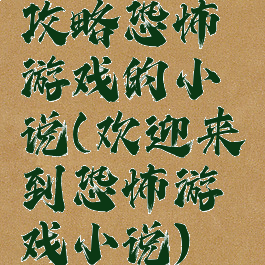 攻略恐怖
游戏的小
说(欢迎来
到恐怖游
戏小说)